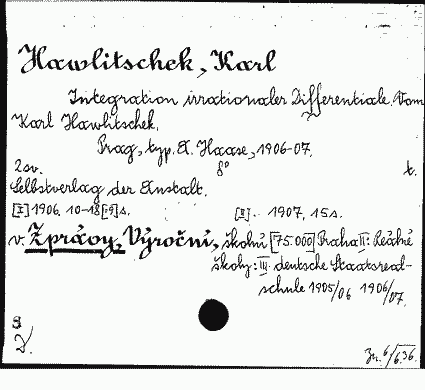 Hawlitschek, Karl
Integration irrationaler Differentiale. Vom
Karl Hawlitschek.
Prag, typ. A. Haase, 1906-07.
2 sv. 8° t.
Selbstverlag der Anstalt.
[I] 1906, 10-18 [19] s. [II]. 1907, 15 s.
v. Zprávy, Výroční, školní [75.000] Praha II: Reálné
školy: III. deutsche Staatsreal-
schule 1905/06 1906/07.